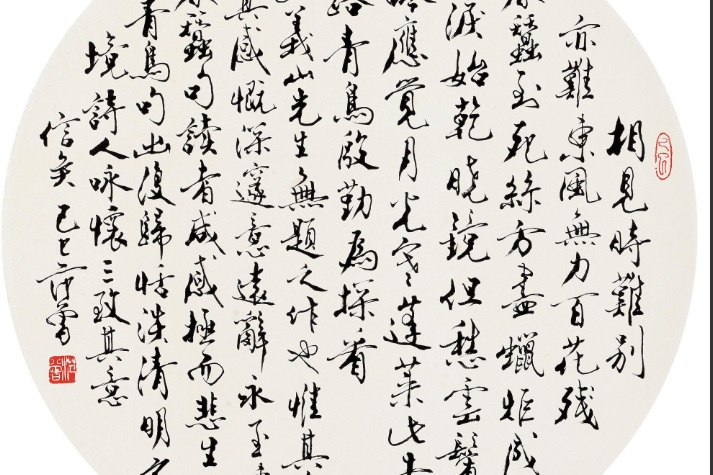 相見時難別
亦難東風無力百花残
春蠶到死絲方盡蠟炬成
淚始乾曉鏡但愁雲鬢
吟應覺月光寒蓬萊此去
路青鳥殷勤為探看
義山先生無題之作也惟其
其感慨深邃意遠辭永至
蠶句讀者咸感極而悲生
青鳥句出復歸恬淡清明之
境詩人咏懷三致其意
信矣己巳范曾
范曾